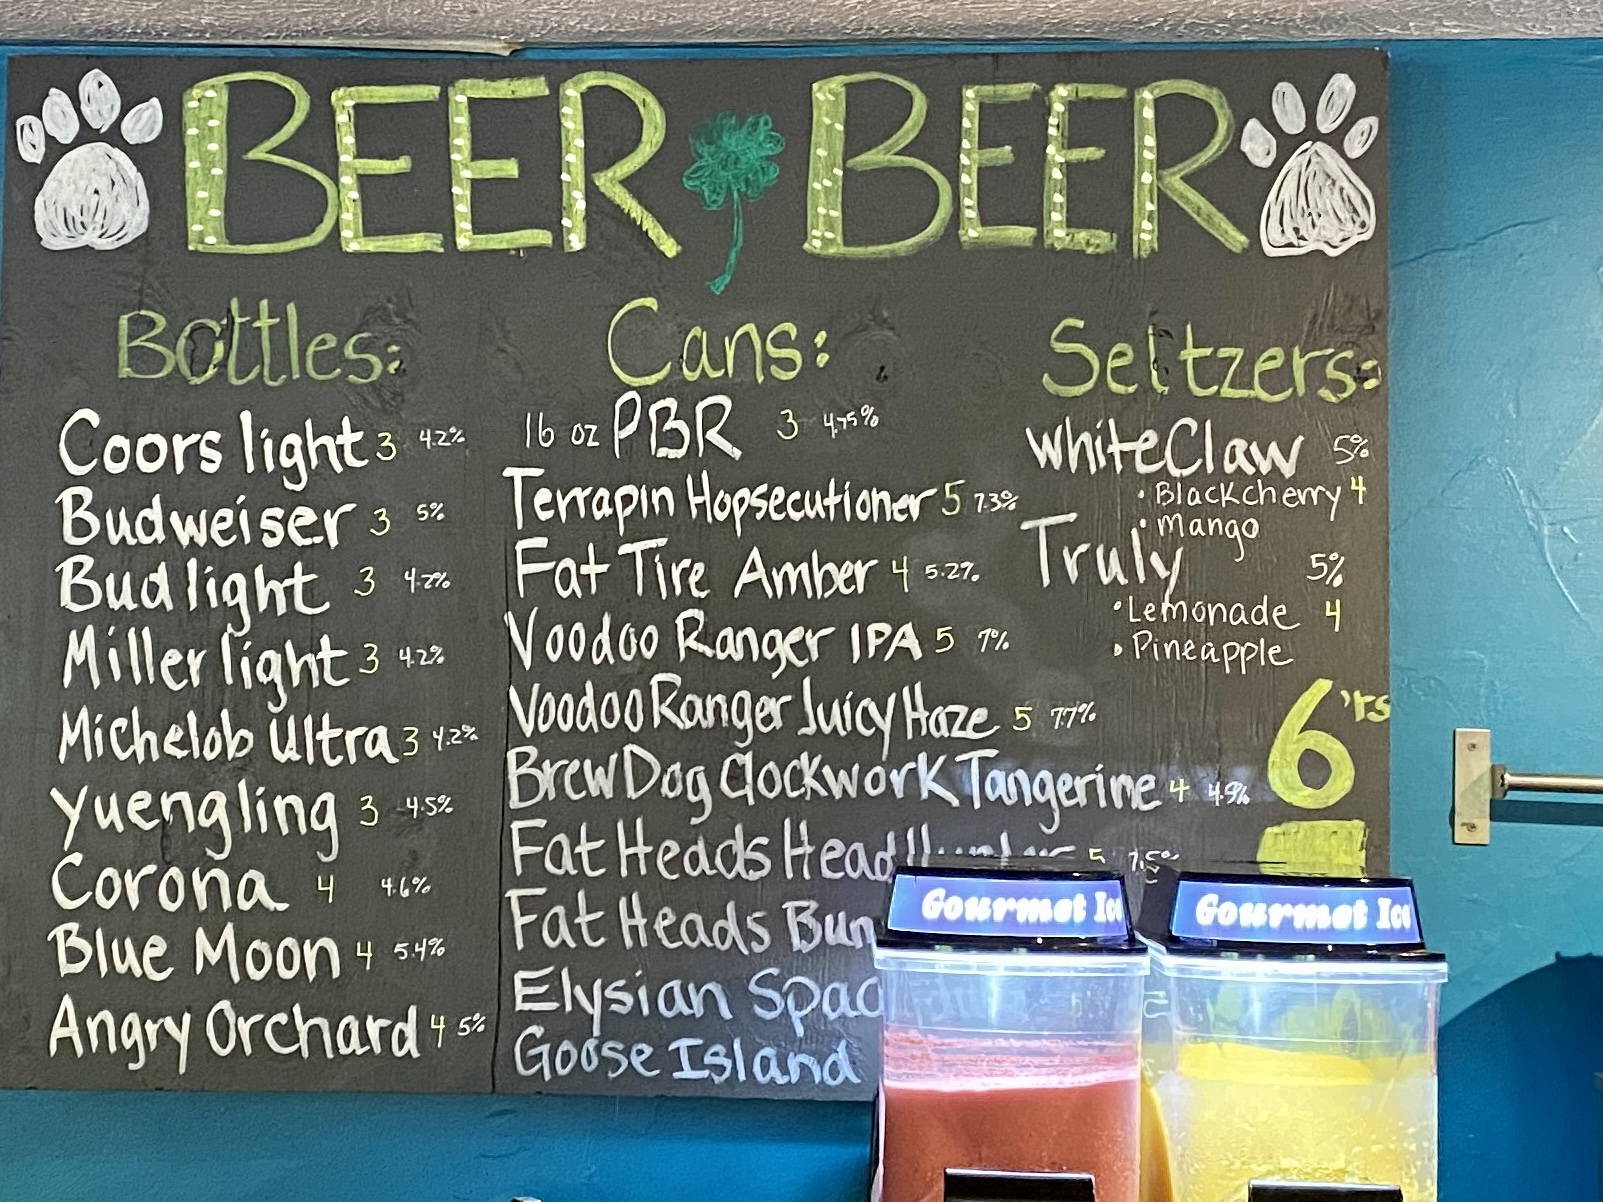 BEER BEER
Bottles:
Coors light 3 4.2%
Budweiser 3 5%
Bud light 3 4.2%
Miller light 3 4.2%
Michelob Ultra 3 4.2%
Yuengling 3 4.5%
Corona 4 4.6%
Blue Moon 4 5.4%
Angry Orchard 4 5%
Cans:
16 oz PBR 3 4.75%
Terrapin Hopsecutioner 5 7.3%
Fat Tire Amber 4 5.2%
Voodoo Ranger IPA 5 7%
Voodoo Ranger Juicy Haze 5 7.7%
BrewDog Clockwork Tangerine 4 4.9%
Fat Heads Head 5 7.5%
Fat Heads Bun
Elysian Spac
Goose Island
Seltzers:
White Claw 5%
• Blackcherry 4
• Mango
Truly 5%
• Lemonade 4
• Pineapple
6'rs
Gourmet Ice
Gourmet Ice